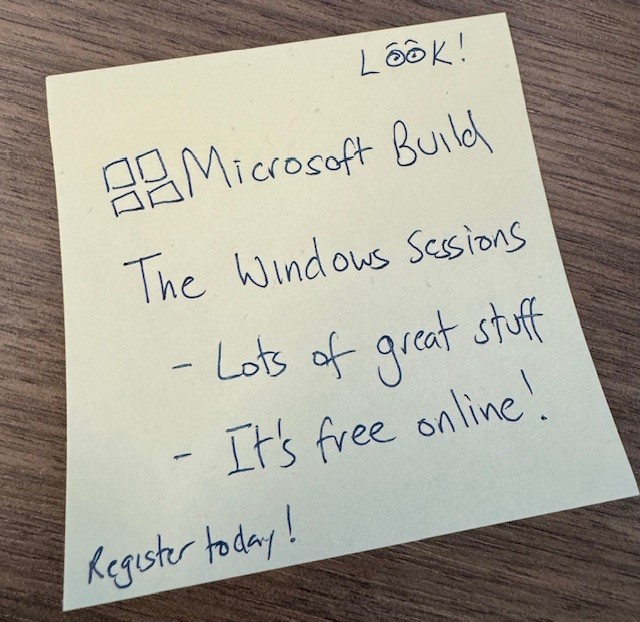 LOOK!
Microsoft Build
The Windows Sessions
- Lots of great stuff
- It's free online!
Register today!